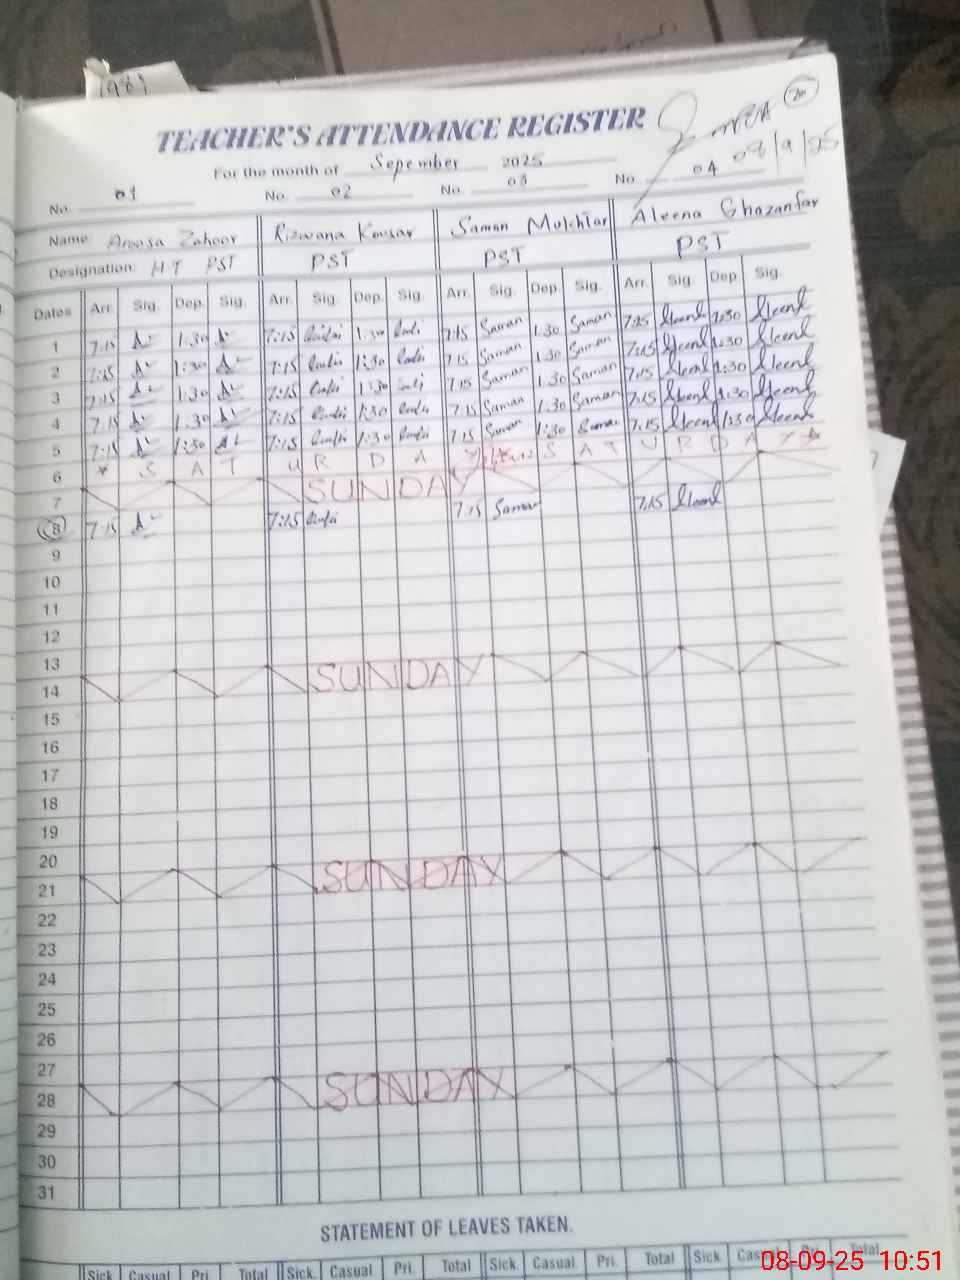 1981
TEACHER'S ATTENDANCE REGISTER
For the month of Sepember 2025
08/9/25
No. 01 No. 02 No. 03 No. 04
Name: Aroosa Zahoor Rizwana Kousar Saman Mukhtar Aleena Ghazanfar
Designation: HT PST PST PST PST
Dates Arr. Sig. Dep. Sig. Arr. Sig. Dep. Sig. Arr. Sig. Dep. Sig. Arr. Sig. Dep. Sig.
1 7:15 1:30 7:15 1:30 7:15 Saman 1:30 Saman 7:15 1:30
2 7:15 1:30 7:15 1:30 7:15 Saman 1:30 Saman 7:15 1:30
3 7:15 1:30 7:15 1:30 7:15 Saman 1:30 Saman 7:15 1:30
4 7:15 1:30 7:15 1:30 7:15 Saman 1:30 Saman 7:15 1:30
5 7:15 1:30 7:15 1:30 7:15 Saman 1:30 Saman 7:15 1:30
6 * S A T U R D A Y * S A T U R D A Y *
7 SUNDAY
8 7:15 7:15 7:15 Saman 7:15
9
10
11
12
13
14 SUNDAY
15
16
17
18
19
20
21 SUNDAY
22
23
24
25
26
27
28 SUNDAY
29
30
31
STATEMENT OF LEAVES TAKEN.
Sick. Casual Pri. Total Sick. Casual Pri. Total Sick. Casual Pri. Total Sick. Pri. Total
08-09-25 10:51